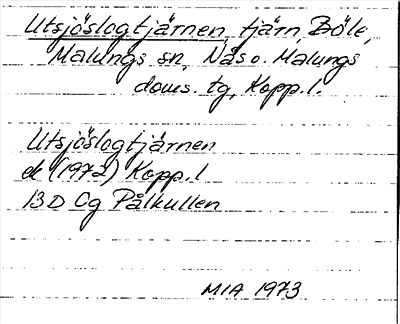 Utsjöslogtjärnen, tjärn, Böle,
Malungs sn, Nås o. Malungs
doms. tg, Kopp. l.
Utsjöslogtjärnen
ek (1972) Kopp. l
13 D Cg Pålkullen
MIA 1973